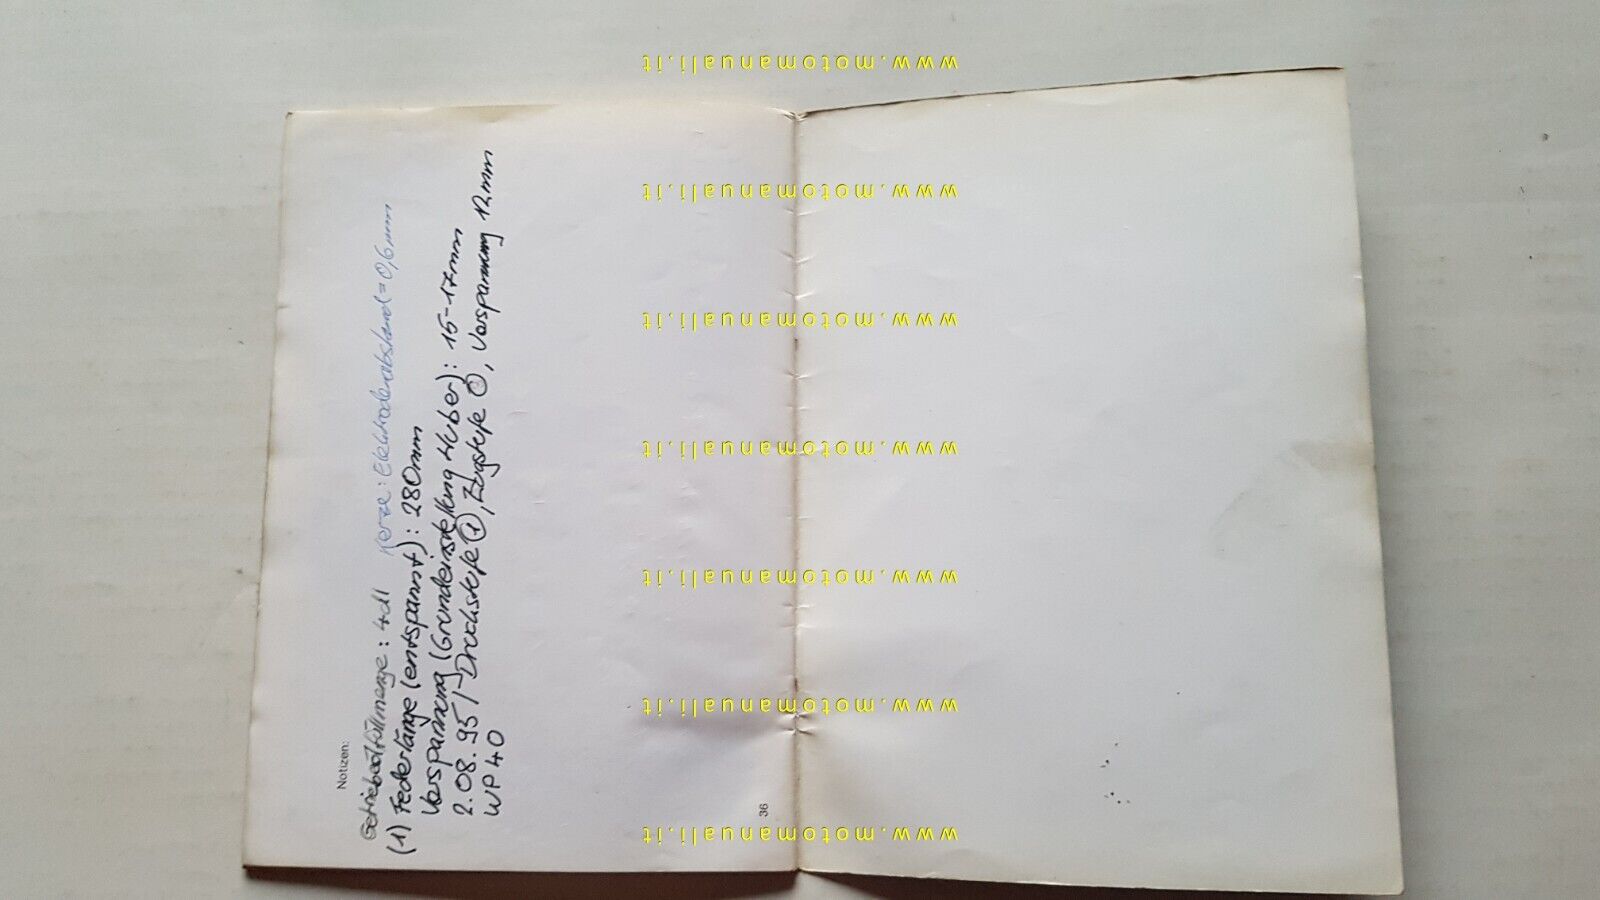 Notizen:
Getriebeölfüllmenge: 4dl Kerze: Elektrodenabstand=0,6mm
(1) Federlänge (entspannt): 280mm
Vorspannung (Grundeinstellung Huber): 15-17mm
2.08.95/ Druckstufe ①, Zugstufe ①, Vorspannung 12mm
WP40
36
www.motomanuali.it
www.motomanuali.it
www.motomanuali.it
www.motomanuali.it
www.motomanuali.it
www.motomanuali.it
www.motomanuali.it